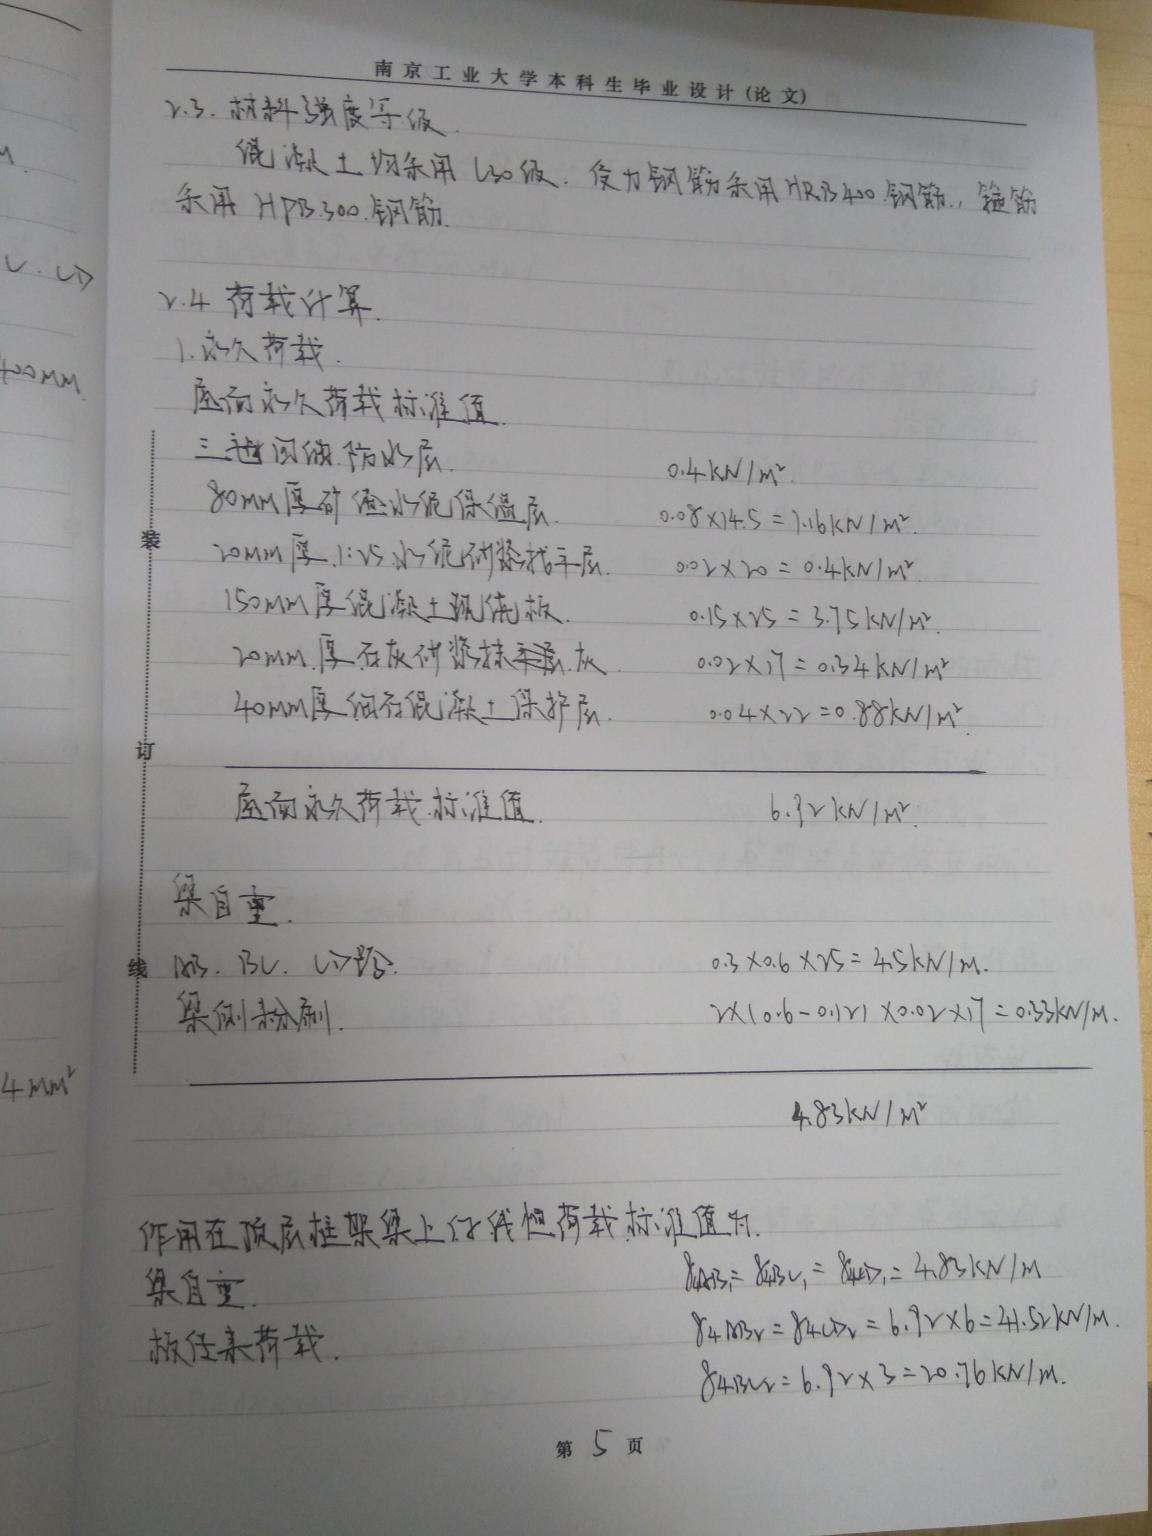 南京工业大学本科生毕业设计(论文)
2.3. 材料强度等级.
混凝土均采用C30级. 受力钢筋采用HRB400钢筋., 箍筋
采用HPB300.钢筋.
2.4 荷载计算.
1.永久荷载.
屋面永久荷载标准值.
三毡四油防水层. 0.4kN/m²
80mm厚矿渣水泥保温层. 0.08×14.5=1.16kN/m².
20mm厚1:25水泥砂浆找平层. 0.02×20=0.4kN/m².
150mm厚混凝土现浇板. 0.15×25=3.75kN/m².
20mm.厚石灰砂浆抹灰. 0.02×17=0.34kN/m²
40mm厚细石混凝土保护层. 0.04×22=0.88kN/m².
屋面永久荷载.标准值. 6.92kN/m².
梁自重.
AB. BC. CD跨. 0.3×0.6×25=4.5kN/m.
梁侧粉刷. 2×(0.6-0.12)×0.02×17=0.33kN/m.
4.83kN/m²
作用在顶层框架梁上的线恒荷载标准值为.
梁自重. g4AB1=g4BC1=g4CD1=4.83kN/m
板传来荷载. g4AB2=g4CD2=6.92×6=41.52kN/m.
g4BC2=6.92×3=20.76kN/m.
第 5 页
装
订
线
400mm
4mm²